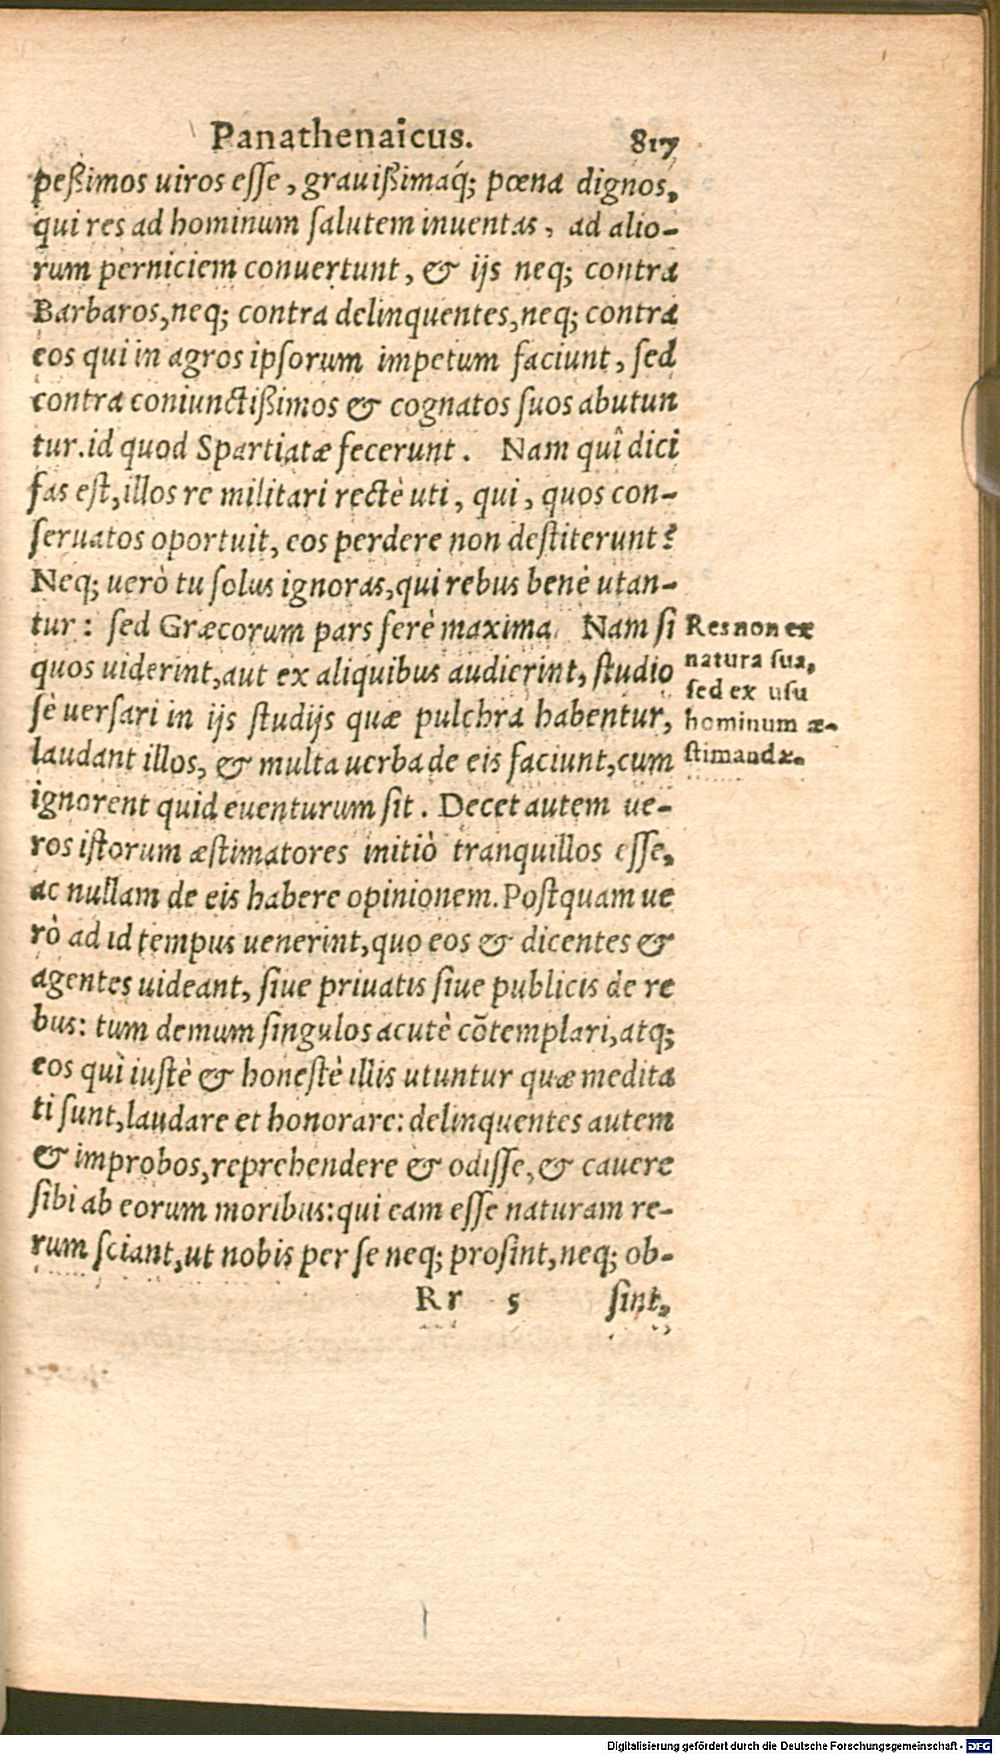 Panathenaicus. 817
peßimos uiros esse, grauißimaq́; pœna dignos,
qui res ad hominum salutem inuentas, ad alio-
rum perniciem conuertunt, & ijs neq; contra
Barbaros, neq; contra delinquentes, neq; contra
eos qui in agros ipsorum impetum faciunt, sed
contra coniunctißimos & cognatos suos abutun
tur. id quod Spartiatæ fecerunt. Nam quî dici
fas est, illos re militari rectè uti, qui, quos con-
seruatos oportuit, eos perdere non destiterunt?
Neq; uerò tu solus ignoras, qui rebus benè utan-
tur: sed Græcorum pars ferè maxima. Nam si
quos uiderint, aut ex aliquibus audierint, studio
sè uersari in ijs studijs quæ pulchra habentur,
laudant illos, & multa uerba de eis faciunt, cum
ignorent quid euenturum sit. Decet autem ue-
ros istorum æstimatores initiò tranquillos esse,
ac nullam de eis habere opinionem. Postquam ue
rò ad id tempus uenerint, quo eos & dicentes &
agentes uideant, siue priuatis siue publicis de re
bus: tum demum singulos acutè cõtemplari, atq;
eos quì iustè & honestè illis utuntur quæ medita
ti sunt, laudare et honorare: delinquentes autem
& improbos, reprehendere & odisse, & cauere
sibi ab eorum moribus: qui eam esse naturam re-
rum sciant, ut nobis per se neq; prosint, neq; ob-
Rr 5 sint,
Res non ex
natura sua,
sed ex usu
hominum æ-
stimandæ.
Digitalisierung gefördert durch die Deutsche Forschungsgemeinschaft - DFG